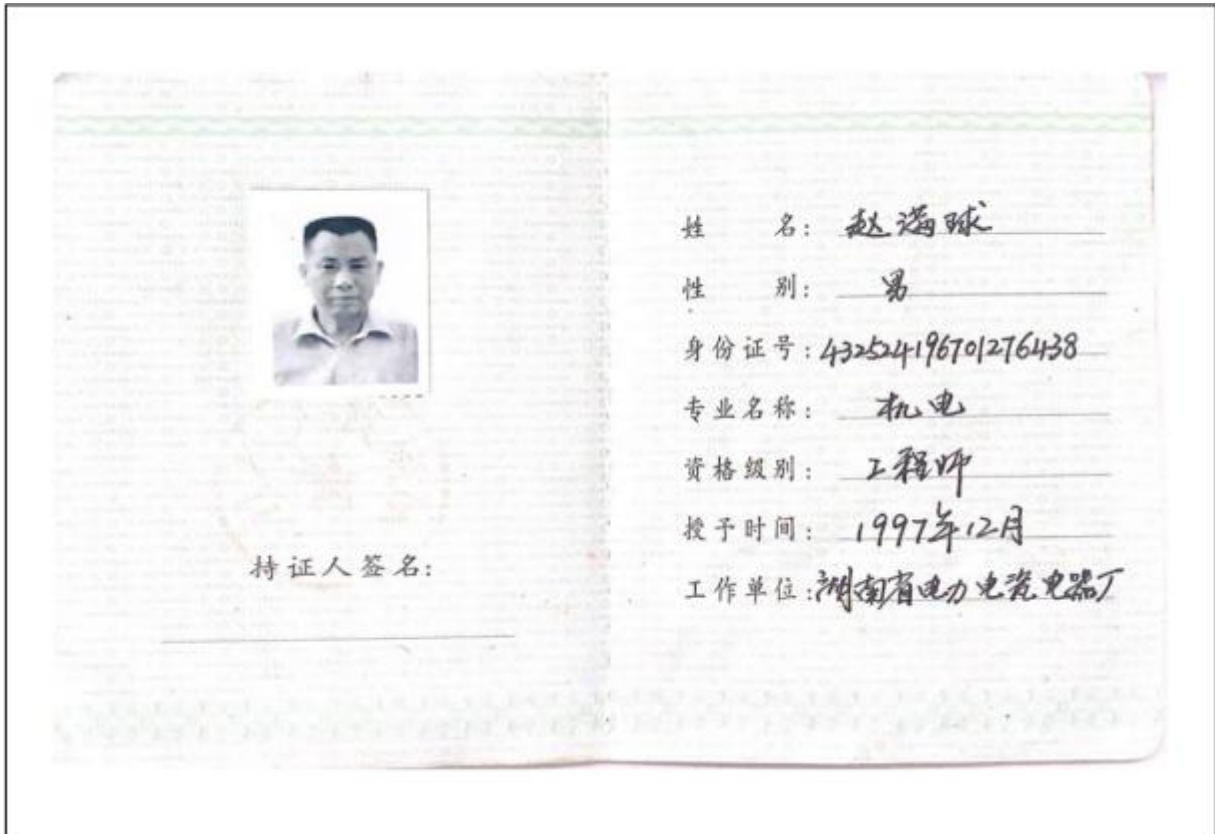 持证人签名:
姓 名: 赵满球
性 别: 男
身份证号: 432524196701276438
专业名称: 机电
资格级别: 工程师
授予时间: 1997年12月
工作单位: 湖南省电力电瓷电器厂